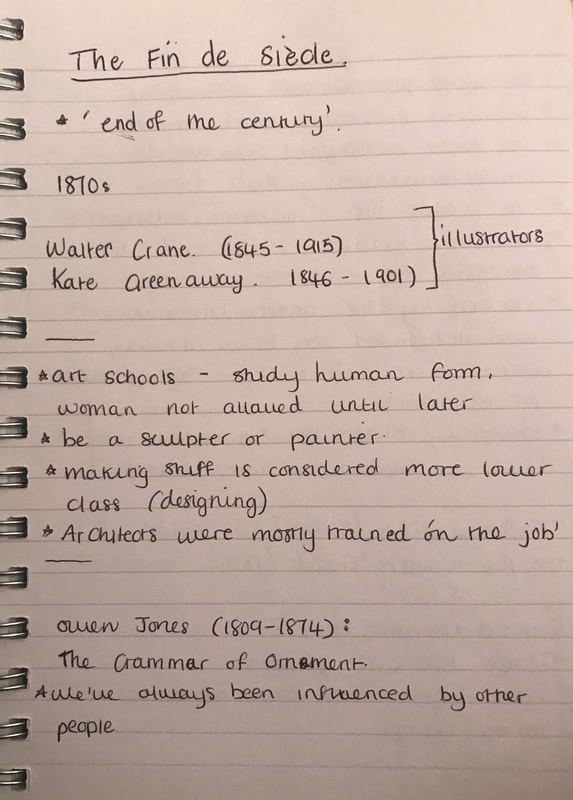 The Fin de Siècle.
* 'end of the century'.
1870s
Walter Crane. (1845 - 1915)
illustrators
Kate Greenaway. 1846 - 1901)
* art schools - study human form,
woman not allowed until later
* be a sculpter or painter.
* making stuff is considered more lower
class (designing)
* Architects were mostly trained 'on the job'
Owen Jones (1809-1874):
The Grammar of Ornament.
* We've always been influenced by other
people